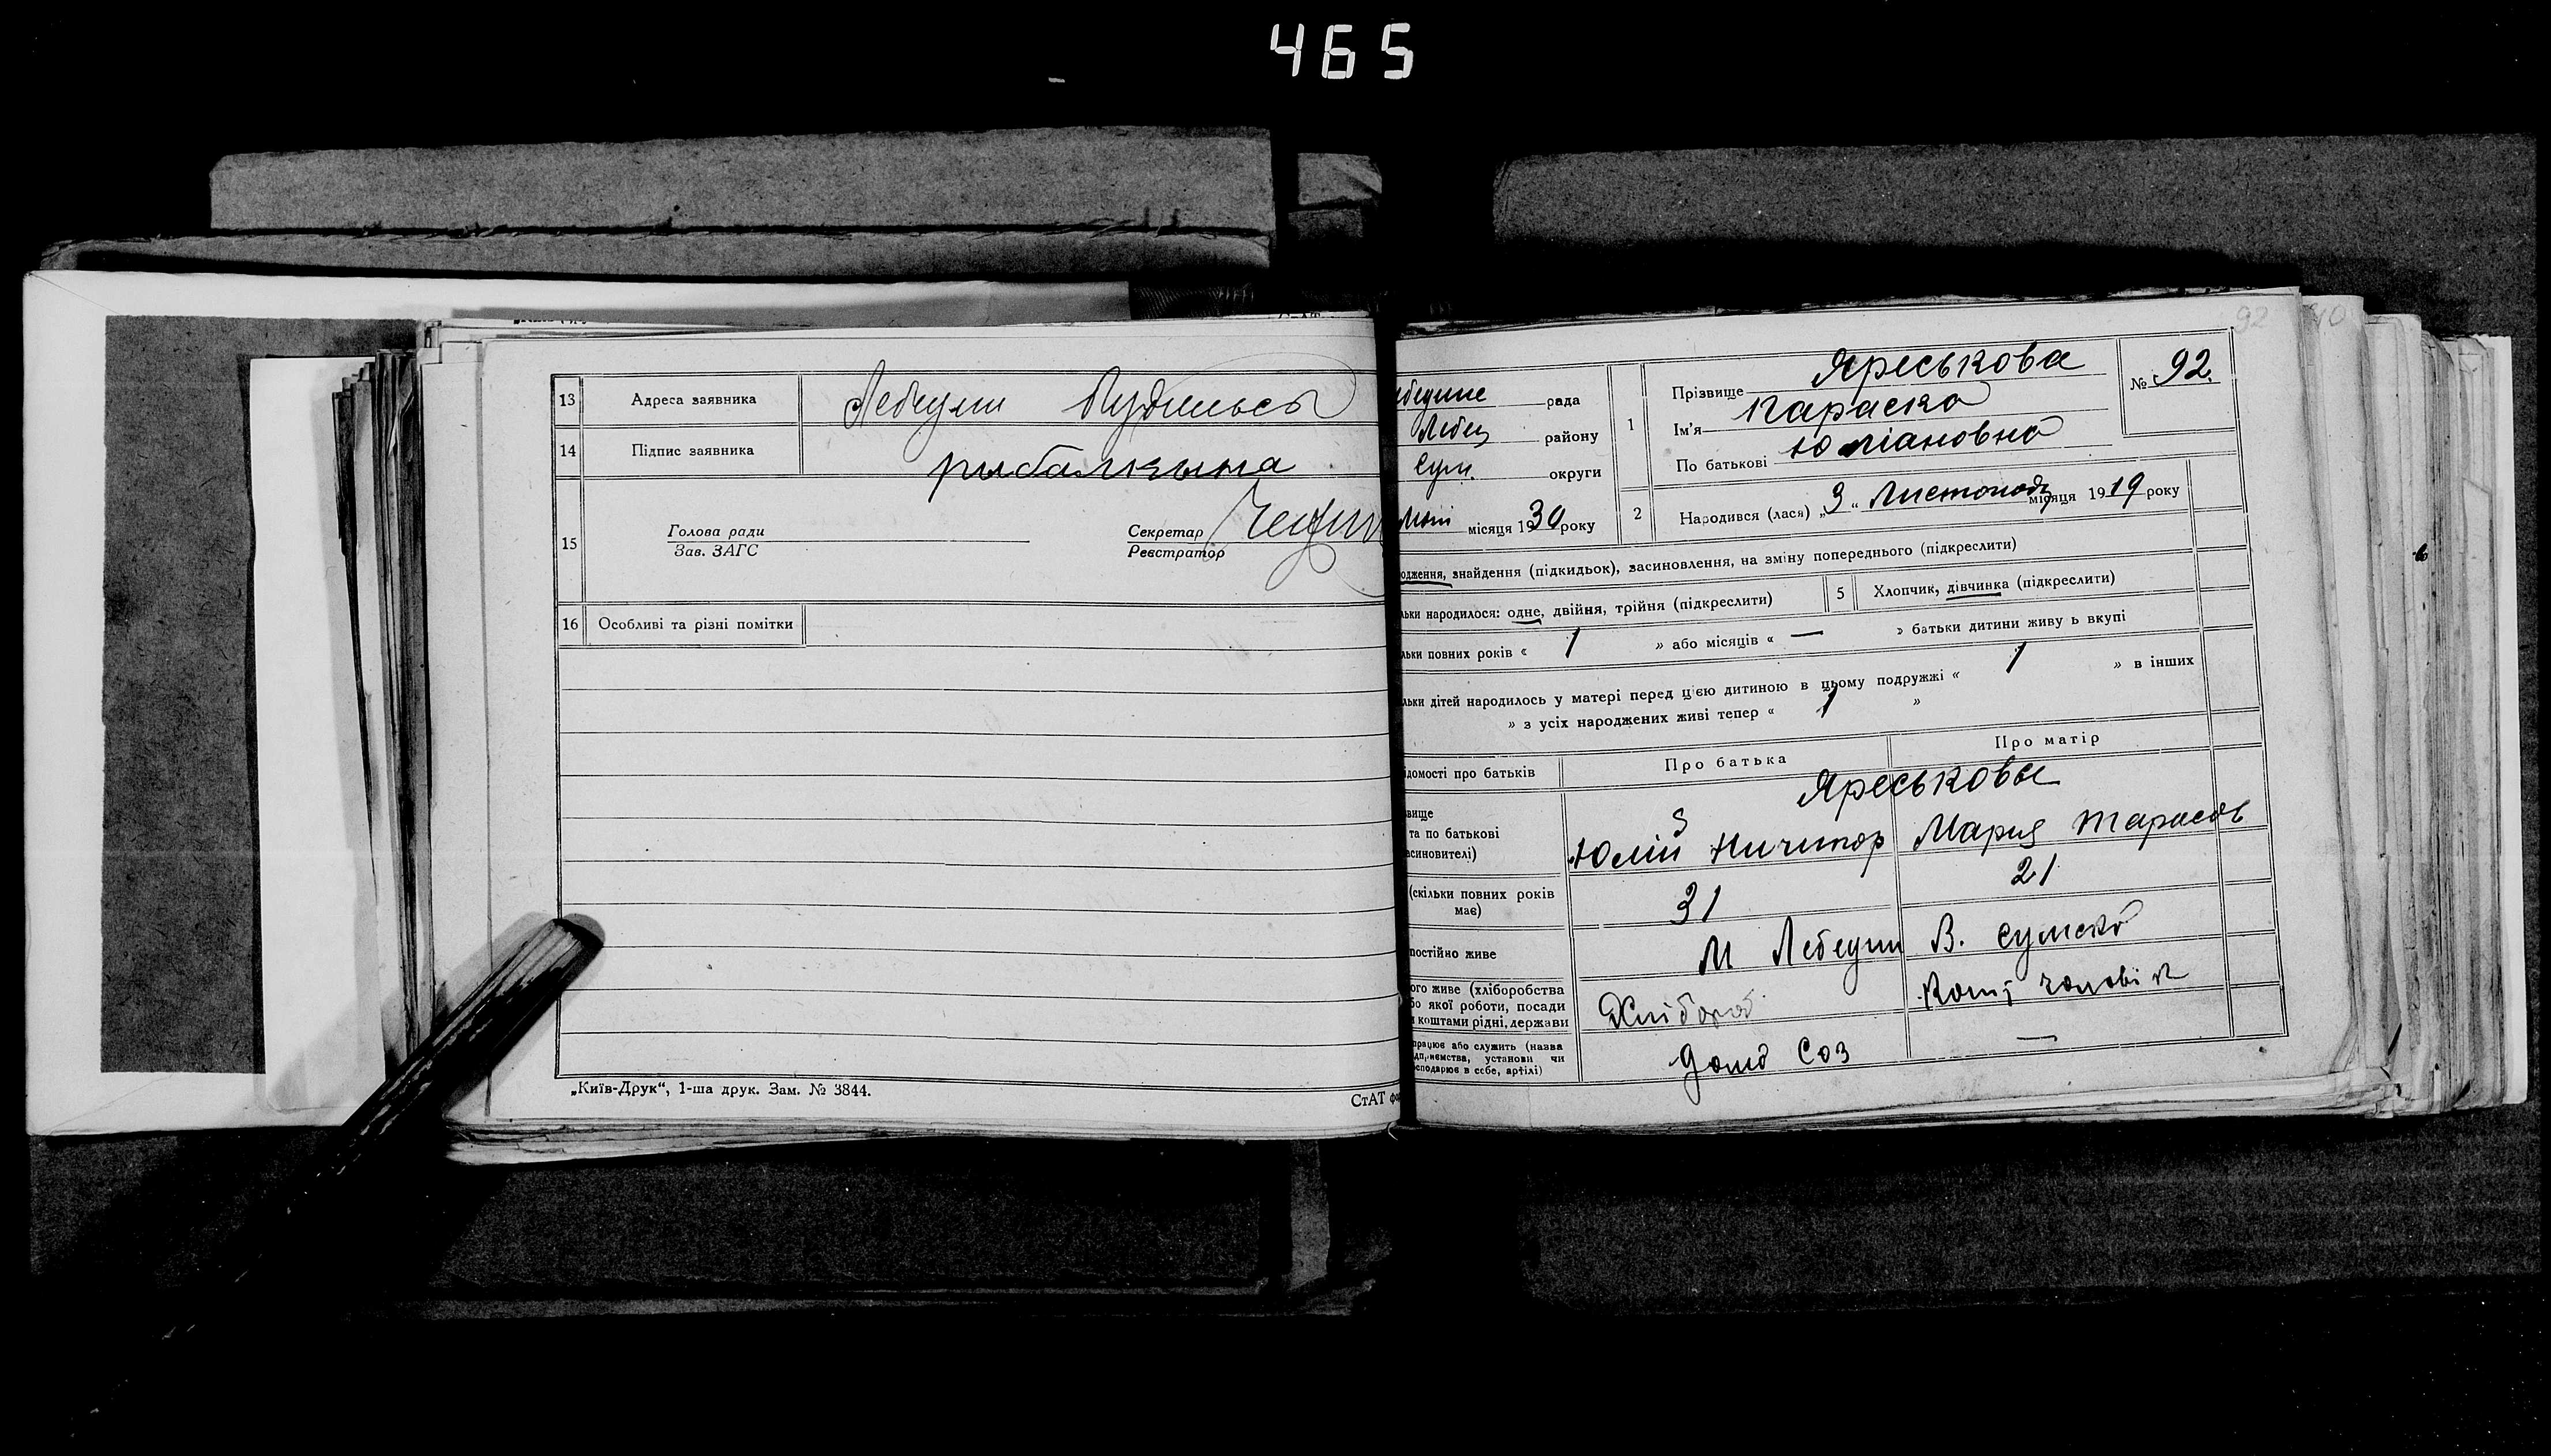 465
13 Адреса заявника Лебедин
14 Підпис заявника рыбалкына
15 Голова ради
Зав. ЗАГС
Секретар
Реєстратор
16 Особливі та різні помітки
„Київ-Друк“, 1-ша друк. Зам. № 3844.
СтАТ
92
рада
Лебед району
Сум. округи
місяця 1930 року
1 Прізвище Яреськова
Ім'я Параска
По батькові Юліановна
№ 92.
2 Народився (лася) „3“ Листопода місяця 1919 року
одження, знайдення (підкидьок), засиновлення, на зміну попереднього (підкреслити)
льки народилося: одне, двійня, трійня (підкреслити) 5 Хлопчик, дівчинка (підкреслити)
льки повних років « 1 » або місяців « — » батьки дитини живу ь вкупі
льки дітей народилось у матері перед цією дитиною в цьому подружжі « 1 » в інших
» з усіх народжених живі тепер « 1 »
ідомості про батьків Про батька Про матір
Яреськовы
вище
та по батькові
асиновителі)
Юлій Ничипор Мария Тарасов
(скільки повних років
має)
31 21
постійно живе М Лебедин В.
ого живе (хліборобства
бо якої роботи, посади
коштами рідні, держави
Хлібороб Кошт чоловік
працює або служить (назва
ідприємства, установи чи
сподарює в себе, артілі)
Соз —